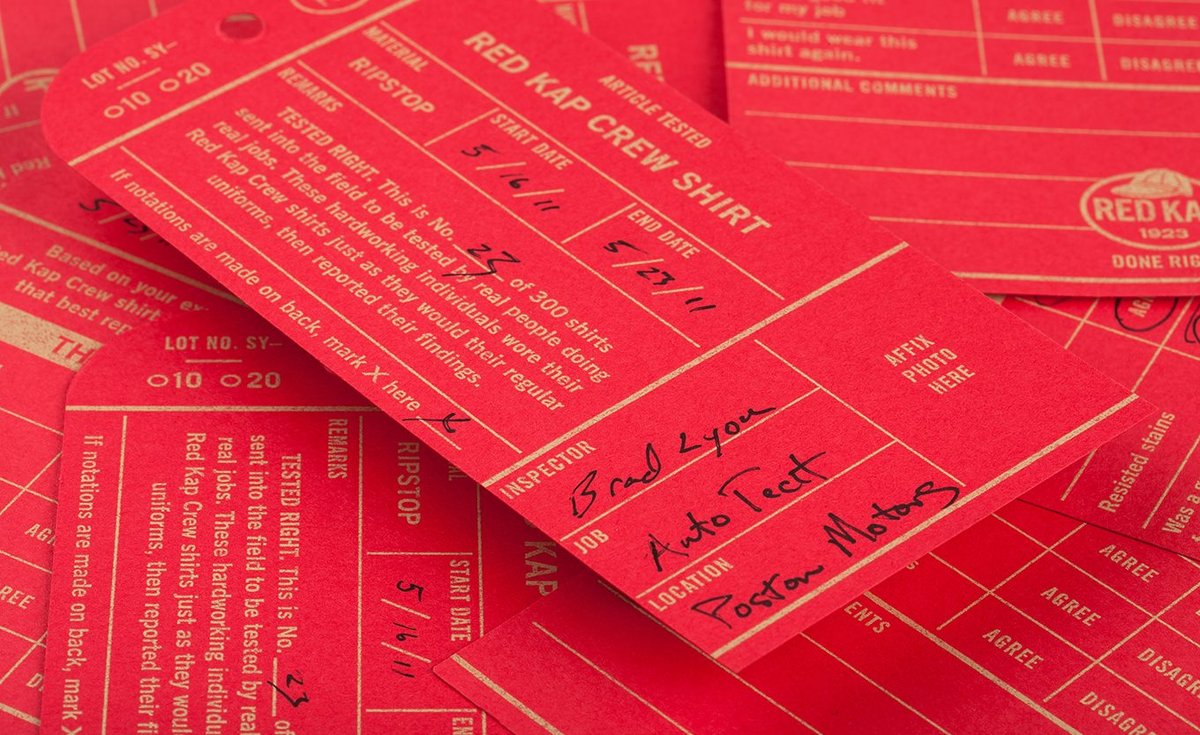 LOT NO. SY–
10 20
ARTICLE TESTED
RED KAP CREW SHIRT
MATERIAL
RIPSTOP
START DATE
5/16/11
END DATE
5/23/11
REMARKS
TESTED RIGHT. This is No. 23 of 300 shirts
sent into the field to be tested by real people doing
real jobs. These hardworking individuals wore their
Red Kap Crew shirts just as they would their regular
uniforms, then reported their findings.
If notations are made on back, mark X here
INSPECTOR
Brad Lyon
JOB
Auto Tech
LOCATION
Poston Motors
AFFIX
PHOTO
HERE
for my job
AGREE
DISAGREE
I would wear this
shirt again.
AGREE
DISAGREE
ADDITIONAL COMMENTS
RED KA
1923
DONE RIG
Based on your ex
Red Kap Crew shirt
that best rep
TH
LOT NO. SY–
10 20
RIPSTOP
START DATE
5/16/11
EN
KAP
REMARKS
TESTED RIGHT. This is No. 23 of
sent into the field to be tested by real
real jobs. These hardworking individ
Red Kap Crew shirts just as they woul
uniforms, then reported their fi
If notations are made on back, mark X
Resisted stains
AGREE
AGREE
DISAG
AGREE
DISAGRE
ENTS